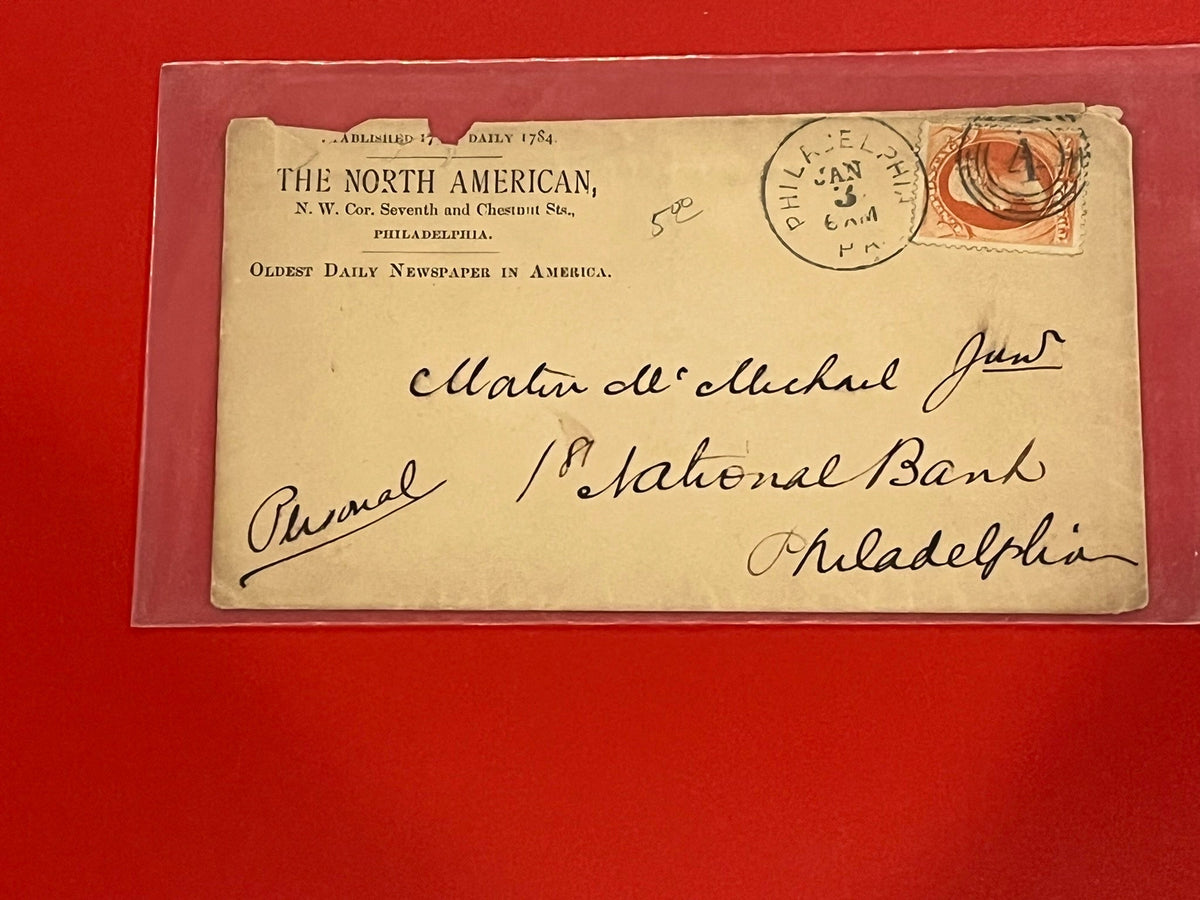 DAILY 1784.
THE NORTH AMERICAN,
N. W. Cor. Seventh and Chestnut Sts.,
PHILADELPHIA.
OLDEST DAILY NEWSPAPER IN AMERICA.
5 00
PHILADELPHIA
JAN
3
6 AM
PA.
A
Morton Mc Michael Junr
1st National Bank
Personal
Philadelphia